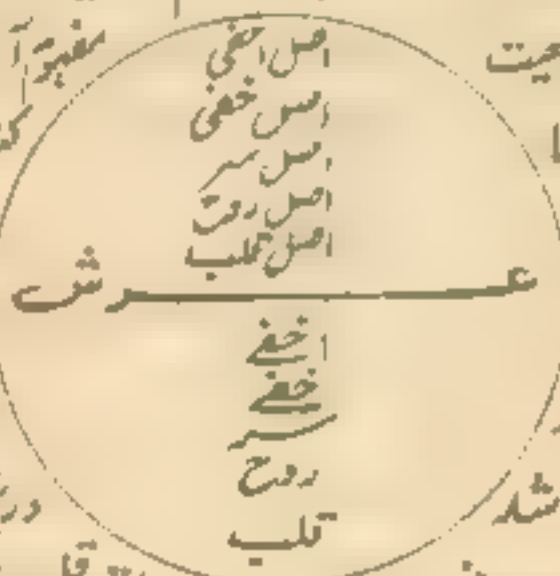 اصل اخفی
اصل خفی
اصل سر
اصل روح
اصل قلب
عرش
اخفے
خفے
سر
روح
قلب